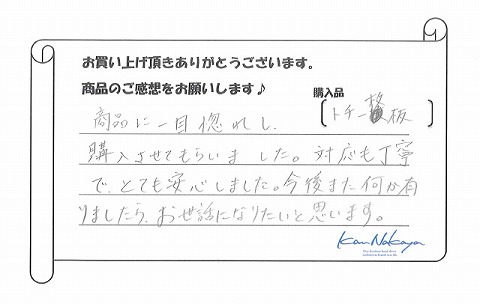 お買い上げ頂きありがとうございます。
商品のご感想をお願いします♪
購入品
トチ一枚板
商品に一目惚れし、
購入させてもらいました。対応も丁寧
で、とても安心しました。今後また何か有
りましたら、お世話になりたいと思います。
KanNakaya